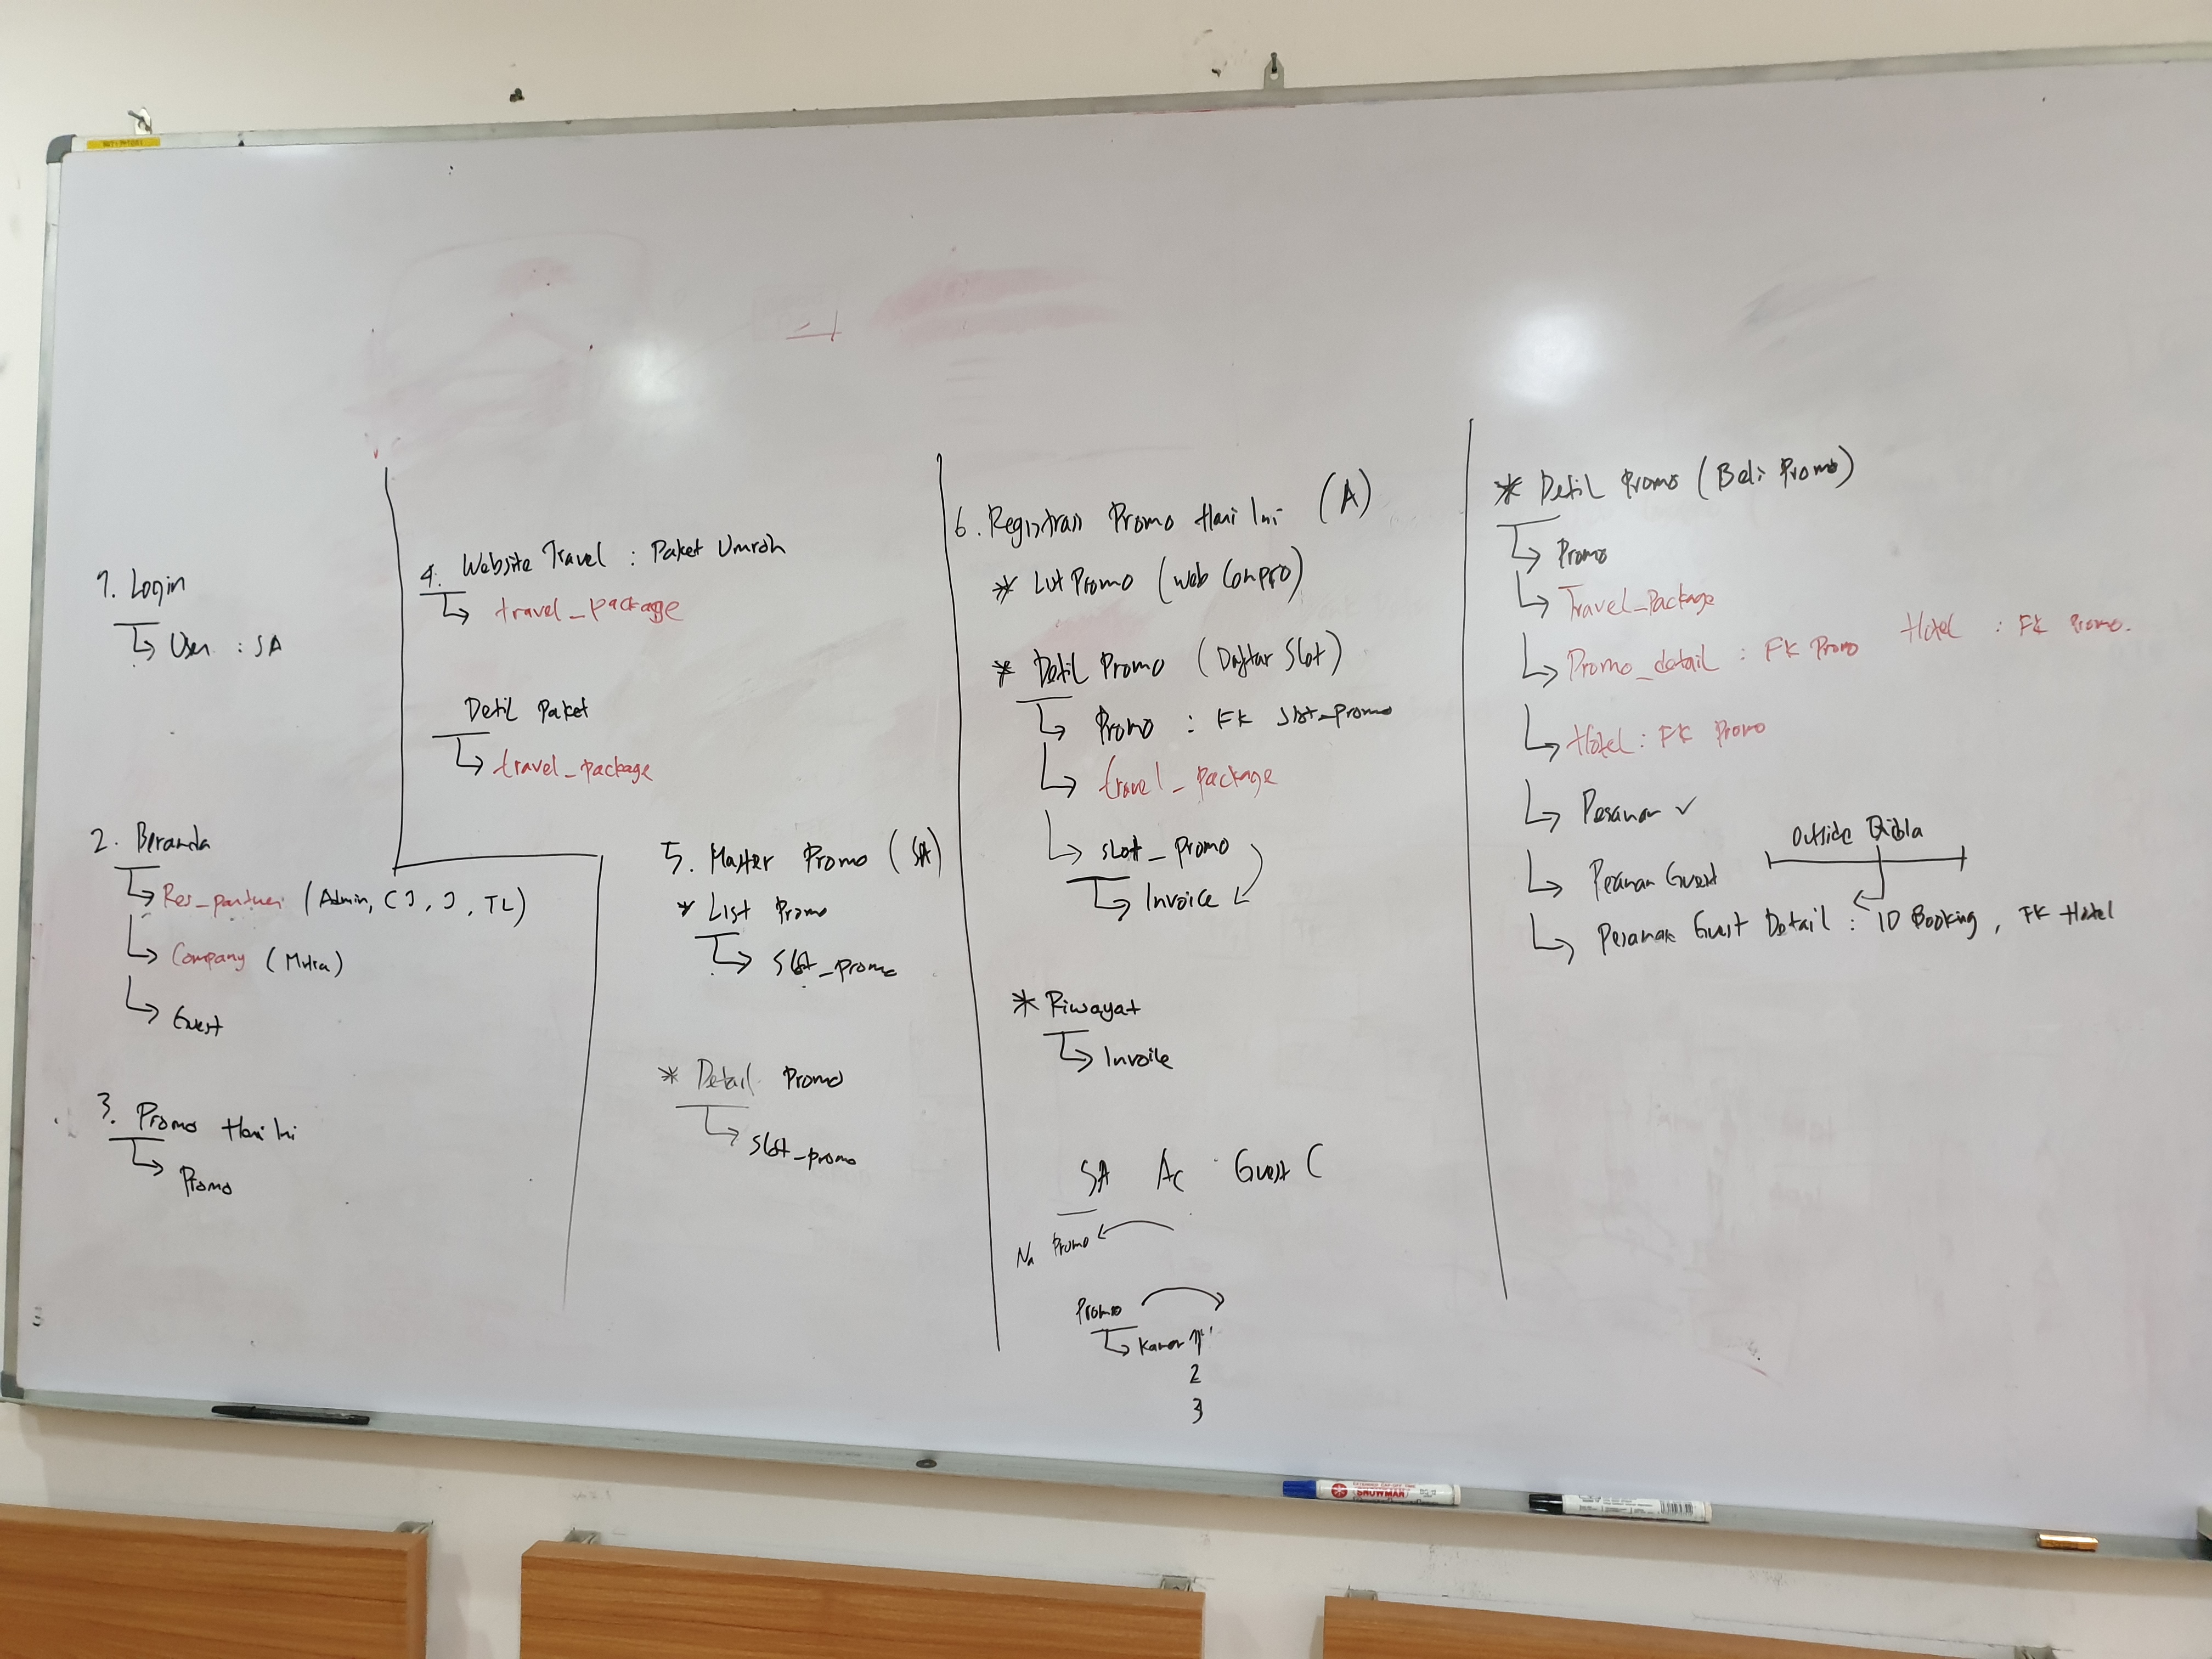 1. Login
User : SA
2. Beranda
Res_partner (Admin, CJ, J, TL)
Company (Mitra)
Guest
3. Promo Hari Ini
Promo
4. Website Travel : Paket Umroh
travel_package
Detil Paket
travel_package
5. Master Promo (SA)
* List Promo
slot_promo
* Detail Promo
slot_promo
6. Registrasi Promo Hari Ini (A)
* List Promo (Web Compro)
* Detil Promo (Daftar Slot)
Promo : FK slot_promo
travel_package
slot_promo
Invoice
* Riwayat
Invoice
SA Ac Guest C
Promo
Promo
Kamar 1
2
3
* Detil Promo (Beli Promo)
Promo
Travel_Package
Promo_detail : FK Promo Hotel : FK Promo.
Hotel : FK Promo
Pesanan ✓
Outside Qibla
Pesanan Guest
Pesanan Guest Detail : ID Booking, FK Hotel
SNOWMAN